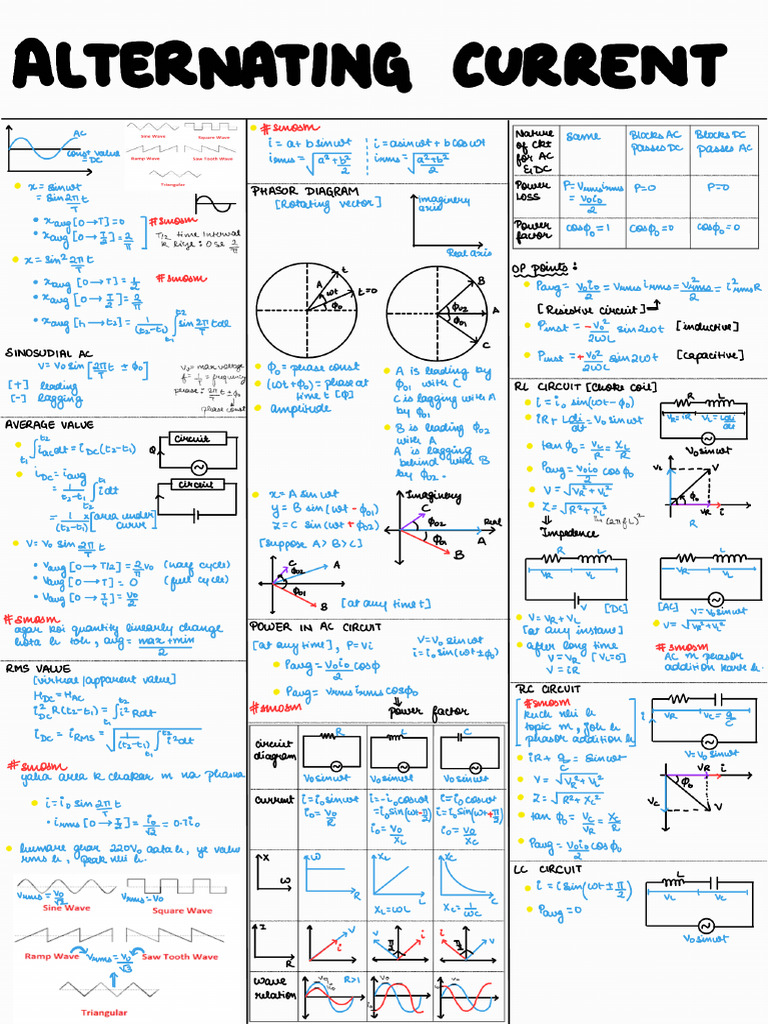 ALTERNATING CURRENT
AC
const value
= DC
Sine Wave
Square Wave
Ramp Wave
Saw Tooth Wave
Triangular
x = sinωt
= sin 2π/T t
x avg [0→T] = 0
x avg [0→T/2] = 2/π
#smosm
T/2 time interval
x = sin² 2π/T t
x avg [0→T] = 1/2
#smosm
x avg [t₁→t₂] = 1/(t₂-t₁) ∫ sin 2π/T t dt
SINOSUDIAL AC
V = V₀ sin [2π/T t ± φ₀]
V₀ = max voltage
f = 1/T = frequency
phase: 2π/T t ± φ₀
phase const
[+] leading
[-] lagging
AVERAGE VALUE
∫ i AC dt = i DC (t₂-t₁)
i DC = i avg
= 1/(t₂-t₁) ∫ i dt
= 1/(t₂-t₁) x [area under curve]
circuit
Q
circuit
V = V₀ sin 2π/T t
V avg [0→T/2] = 2/π V₀ (half cycle)
V avg [0→T] = 0 (full cycle)
#smosm
agar koi quantity linearly change
hota h toh, avg = max+min/2
RMS VALUE
[virtual/apparent value]
H DC = H AC
i² DC R(t₂-t₁) = ∫ i² R dt
i DC = i RMS = √(1/(t₂-t₁) ∫ i² dt)
#smosm
i = i₀ sin 2π/T t
i rms [0→T/2] = i₀/√2 = 0.7 i₀
humare ghar 220V₀ aata h, ye value
rms h, peak nhi h.
V rms = V₀/√2
V rms = V₀
Sine Wave
Square Wave
Ramp Wave
V rms = V₀/√3
Saw Tooth Wave
Triangular
#smosm
i = a + b sinωt
i = a sinωt + b cosωt
PHASOR DIAGRAM
[Rotating vector]
imaginery axis
Real axis
A
t
ωt
t=0
φ₀
B
φ₀₂
A
φ₀₁
C
φ₀ = phase const
(ωt+φ₀) = phase at
time t [φ]
amplitude
A is leading by
φ₀₁ with C
C is lagging with A
by φ₀₁
B is leading φ₀₂
with A
A is lagging
behind with B
by φ₀₂.
x = A sin ωt
y = B sin(ωt - φ₀₁)
z = C sin(ωt + φ₀₂)
[suppose A > B > C]
Imaginary
C
φ₀₂
Real
A
φ₀₁
B
C
φ₀₂
A
φ₀₁
B
[at any time t]
POWER IN AC CIRCUIT
[at any time], P = Vi
V = V₀ sinωt
i = i₀ sin(ωt ± φ₀)
P avg = V₀i₀/2 cosφ
P avg = V rms i rms cosφ₀
#smosm
power factor
circuit diagram
R
V₀ sinωt
L
V₀ sinωt
C
V₀ sinωt
current
i = i₀ sinωt
i₀ = V₀/R
i = -i₀ cosωt
= i₀ sin(ωt - π/2)
i₀ = V₀/X L
i = i₀ cosωt
i = i₀ sin(ωt + π/2)
i₀ = V₀/X C
X
ω
ω
R
X L
L
X L = ωL
X C
C
X C = 1/ωC
I
R
V
i
V
π/2
i
i
π/2
V
wave relation
R>1
Nature of ckt for AC & DC
Same
Blocks AC passes DC
Blocks DC passes AC
Power Loss
P = V rms i rms = V₀i₀/2
P = 0
P = 0
Power factor
cosφ₀ = 1
cosφ₀ = 0
cosφ₀ = 0
OP points:
P avg = V₀i₀/2 = V rms i rms = V² rms/2 = i² rms R
[Resistive circuit]
P inst = -V₀²/2ωL sin2ωt [inductive]
P inst = +V₀²/2ωL sin2ωt [capacitive]
RL CIRCUIT [choke coil]
i = i₀ sin(ωt - φ₀)
iR + L di/dt = V₀ sinωt
tan φ₀ = V L/V R = X L/R
P avg = V₀i₀/2 cosφ₀
V = √(V R² + V L²)
Z = √(R² + X L²)
→ (2πfL)²
Impedence
R
L
V R = iR
V L = L di/dt
V₀ sinωt
V L
V
φ₀
V R
i
R
R
L
V R
V L
V
[DC]
V = V R + V L
[at any instant]
after long time
V = V R [V L = 0]
V = iR
R
L
V R
V L
[AC]
V = V₀ sinωt
V = √(V R² + V L²)
#smosm
AC m phasor
addition karte h.
RC CIRCUIT
#smosm
kuch nhi h
topic m, joh h
phasor addition h
i
V R
V C = q/C
V = V₀ sinωt
iR + q/C = sinωt
V = √(V R² + V L²)
Z = √(R² + X L²)
tan φ₀ = V C/V R = X C/R
P avg = V₀i₀/2 cosφ₀
V R
i
φ₀
V C
V
LC CIRCUIT
i = i sin(ωt ± π/2)
P avg = 0
L
V L
V C
V₀ sinωt